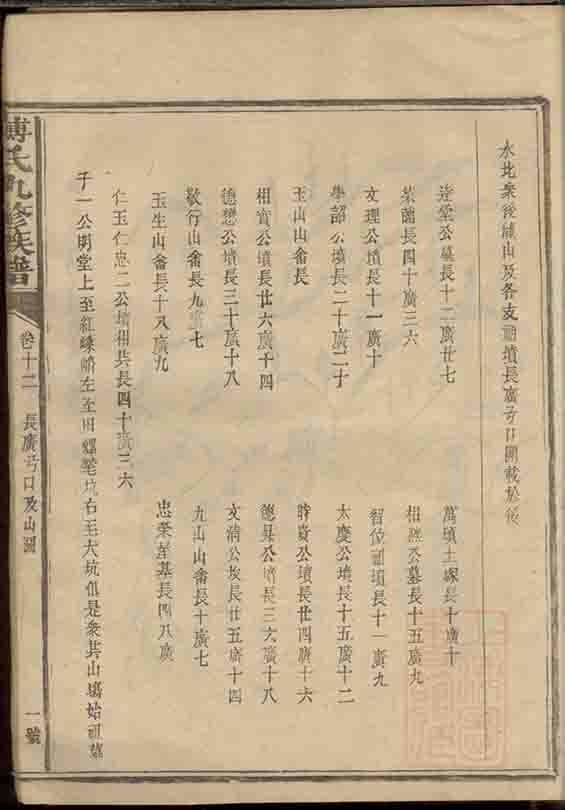 水北衆後龍山及各支祖墳長廣弓口開載於後
達堂公墓長十二廣廿七
萬頃土塚長十廣十
菜薗長四十廣三六
相 公墓長十五廣九
文理公墳長十一廣十
智位祖墳長十一廣九
學詔公墳長二十廣二十
太慶公墳長十五廣十二
玉山山畲長
時資公墳長廿四廣十六
相資公墳長廿六廣千四
德昇公墳長三六廣十八
德懋公墳長三十廣十八
文清公 長廿五廣十四
敬行山畲長九廣七
九山山畲長十廣七
玉生山畲長十八廣九
忠榮 墓長四八廣
仁玉仁忠二公墳相共長四十廣三六
千一公明堂上至紅 嶠左至田螺 坑右至大坑俱是衆共山塲始祖墓
傅氏九修族譜
卷十二
長廣弓口及山圖
一號